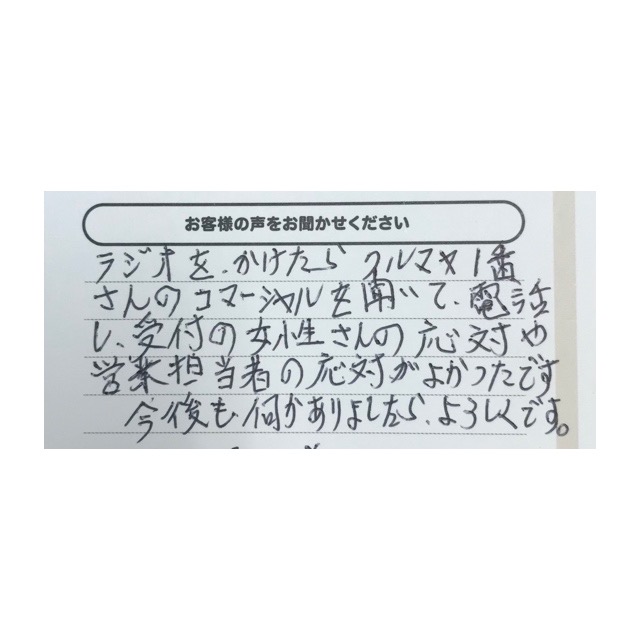 お客様の声をお聞かせください
ラジオを、かけたら クルマヤ1番
さんのコマーシャルを聞いて、電話
し、受付の女性さんの応対や
営業担当者の応対がよかったです
今後も何かありましたら、よろしくです。